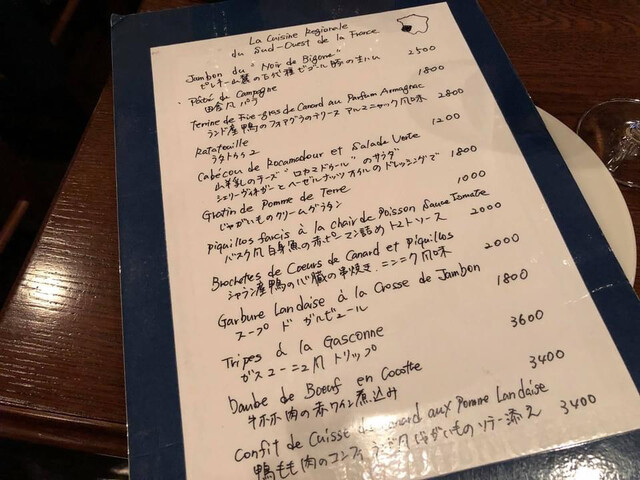 La Cuisine Regionale
du Sud-Ouest de la France
Jambon du "Noir de Bigorre" 2500
ピレネー山麓の古代種ビゴール豚の生ハム
・Pâté du Campagne 1800
田舎風パテ
Terrine de Foie-gras de Canard au Parfum Armagnac 2800
ランド産鴨のフォアグラのテリーヌ アルマニャック風味
Ratatouille 1200
ラタトゥイユ
Cabécou de Rocamadour et Salade Verte 1800
山羊乳のチーズ "ロカマドゥール" のサラダ
シェリーヴィネガーとヘーゼルナッツオイルのドレッシングで
Gratin de Pomme de Terre 1000
じゃがいものクリームグラタン
Piquillos farcis à la chair de Poisson Sauce Tomate 2000
バスク風白身魚の赤ピーマン詰め トマトソース
Brochetes de Coeurs de Canard et Piquillos 2000
シャラン産鴨の心臓の串焼き、ニンニク風味
Garbure Landaise à la Crosse de Jambon 1800
スープ ド ガルビュール
Tripes à la Gasconne 3600
ガスコーニュ風 トリップ
Daube de Boeuf en Cocotte 3400
牛ホホ肉の赤ワイン煮込み
Confit de Cuisse de Canard aux Pomme Landaise 3400
鴨もも肉のコンフィ 風じゃがいものソテー添え